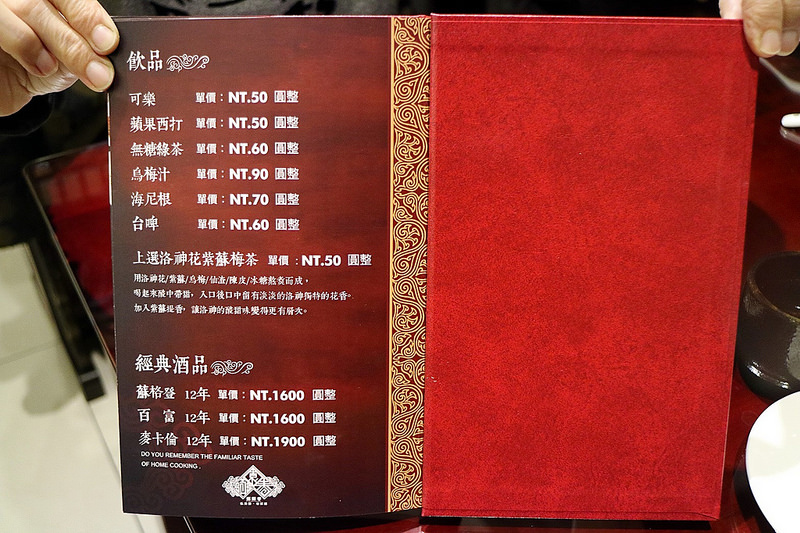 飲品
可樂 單價：NT.50 圓整
蘋果西打 單價：NT.50 圓整
無糖綠茶 單價：NT.60 圓整
烏梅汁 單價：NT.90 圓整
海尼根 單價：NT.70 圓整
台啤 單價：NT.60 圓整
上選洛神花紫蘇梅茶 單價：NT.50 圓整
用洛神花/紫蘇/烏梅/仙渣/陳皮/冰糖熬煮而成，
喝起來酸中帶甜，入口後口中留有淡淡的洛神獨特的花香。
加入紫蘇提香，讓洛神的酸甜味變得更有層次。
經典酒品
蘇格登 12年 單價：NT.1600 圓整
百富 12年 單價：NT.1600 圓整
麥卡倫 12年 單價：NT.1900 圓整
DO YOU REMEMBER THE FAMILIAR TASTE
OF HOME COOKING .